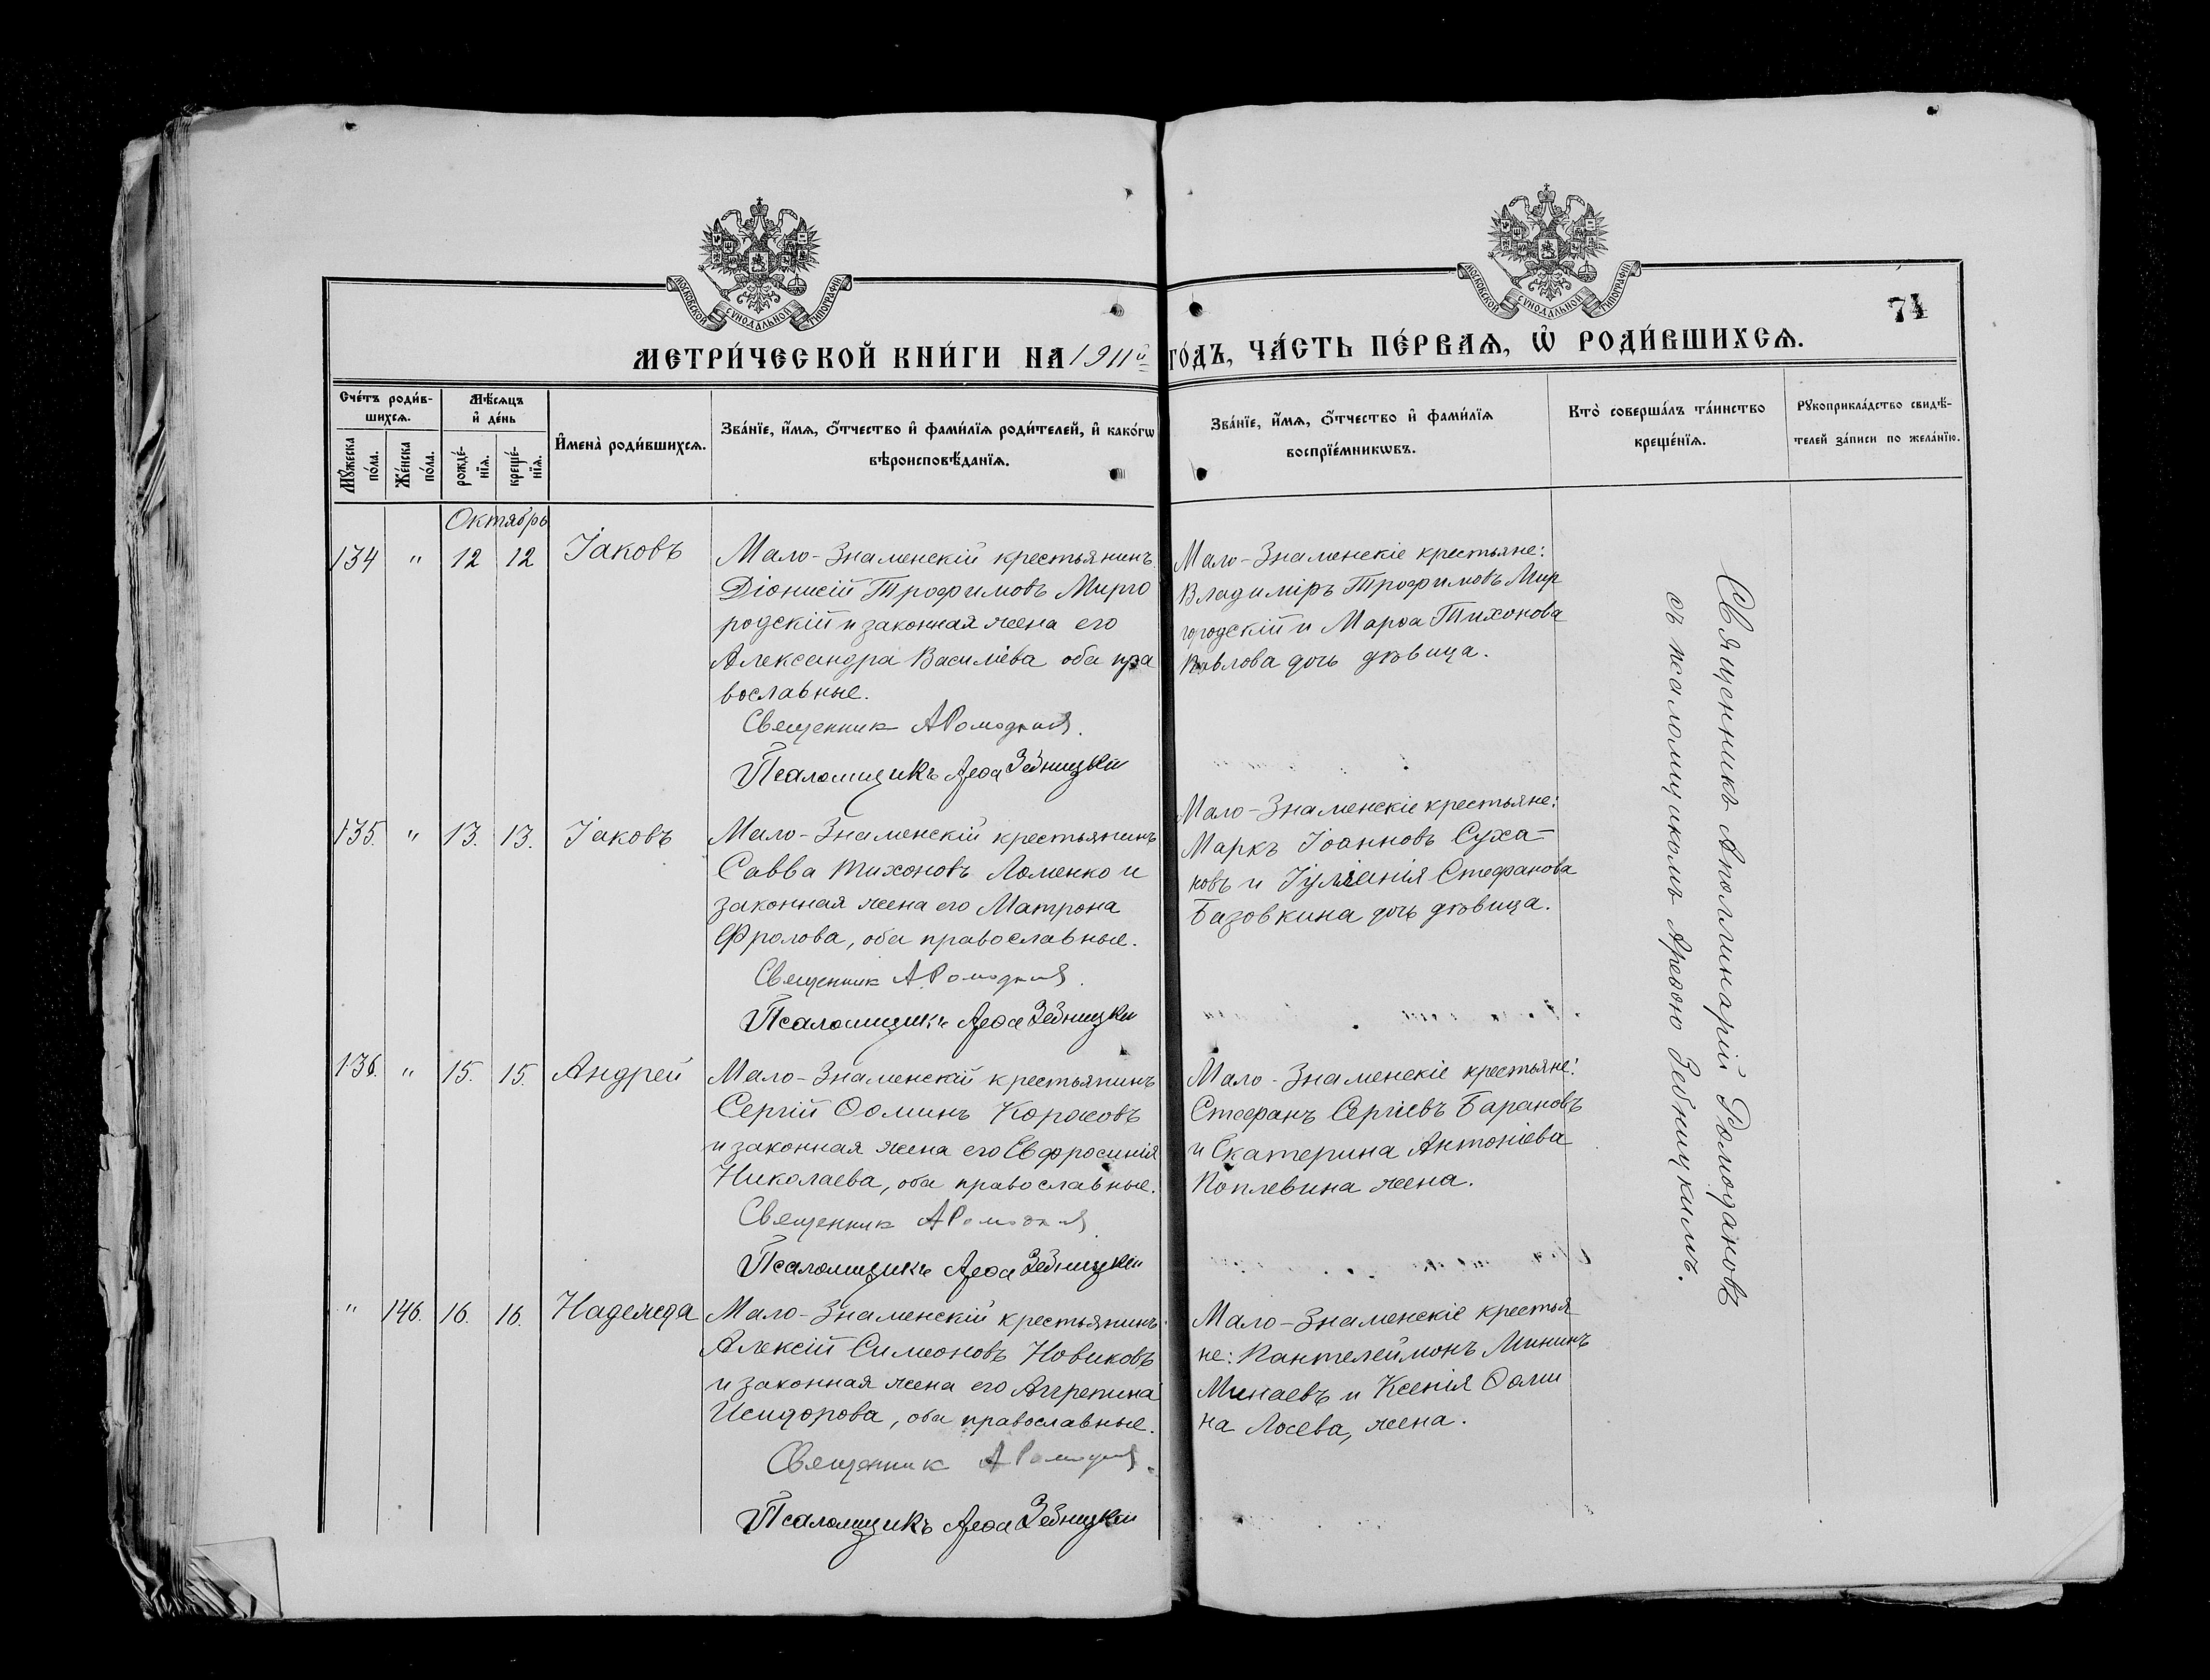 МОСКОВСКОЙ СѴНОДАЛЬНОЙ ТИПОГРАФІИ
МОСКОВСКОЙ СѴНОДАЛЬНОЙ ТИПОГРАФІИ
74
МЕТРИ́ЧЕСКОЙ КНИ́ГИ НА 1911й ГО́ДЪ, ЧА́СТЬ ПЕ́РВАѦ, Ѡ҆ РОДИ́ВШИХСѦ.
Сче́тъ роди́в-
шихсѧ.
Мꙋ́жеска
по́ла.
Же́нска
по́ла.
Мѣ́сѧцъ
и҆ де́нь
рожде́-
нїѧ.
креще́-
нїѧ.
И҆мена̀ роди́вшихсѧ.
Зва́нїе, и҆́мѧ, ѻ҆́тчество и҆ фами́лїѧ роди́телей, и҆ како́гѡ
вѣроисповѣ́данїѧ.
Зва́нїе, и҆́мѧ, ѻ҆́тчество и҆ фами́лїѧ
воспрїе́мникѡвъ.
Кто̀ соверша́лъ та́инство
креще́нїѧ.
Рꙋкоприкла́дство свидѣ́-
телей за́писи по жела́нїю.
Октябрь
134 " 12 12 Іаковъ
Мало-Знаменскій крестьянинъ
Діонисій Трофимовъ Мирго
родскій и законная жена его
Александра Василіева оба пра
вославные.
Священник А Ромоданов.
Псаломщикъ Арефа Зебницкій
Мало-Знаменскіе крестьяне:
Владиміръ Трофимовъ Мир
городскій и Марѳа Тихонова
Павлова дочь дѣвица.
135. " 13. 13. Іаковъ
Мало-Знаменскій крестьянинъ
Савва Тихоновъ Ломенко и
законная жена его Матрона
Фролова, оба православные.
Священник А. Ромоданов.
Псаломщикъ Арефа Зебницкій
Мало-Знаменскіе крестьяне:
Маркъ Іоанновъ Суха-
новъ и Іуліанія Стефанова
Базовкина дочь дѣвица.
136. " 15. 15. Андрей
Мало-Знаменскій крестьянинъ
Сергій Ѳоминъ
и законная жена его Евфросинія
Николаева, оба православные.
Священник А Ромоданов
Псаломщикъ Арефа Зебницкій
Мало-Знаменскіе крестьяне:
Стефанъ Сергіевъ Барановъ
и Екатерина Антоніева
Коплевина жена.
" 146. 16. 16. Надежда
Мало-Знаменскій крестьянинъ
Алексій Симеоновъ Новиковъ
и законная жена его Агрепина
Исидорова, оба православные.
Священник А Ромоданов.
Псаломщикъ Арефа Зебницкій
Мало-Знаменскіе крестья
не: Пантелеймонъ Мининъ
Минаевъ и Ксенія Ѳоми
на Лосева, жена.
Священникъ Аполлинарій Ромодановъ
съ псаломщикомъ Арефою Зебницкимъ.